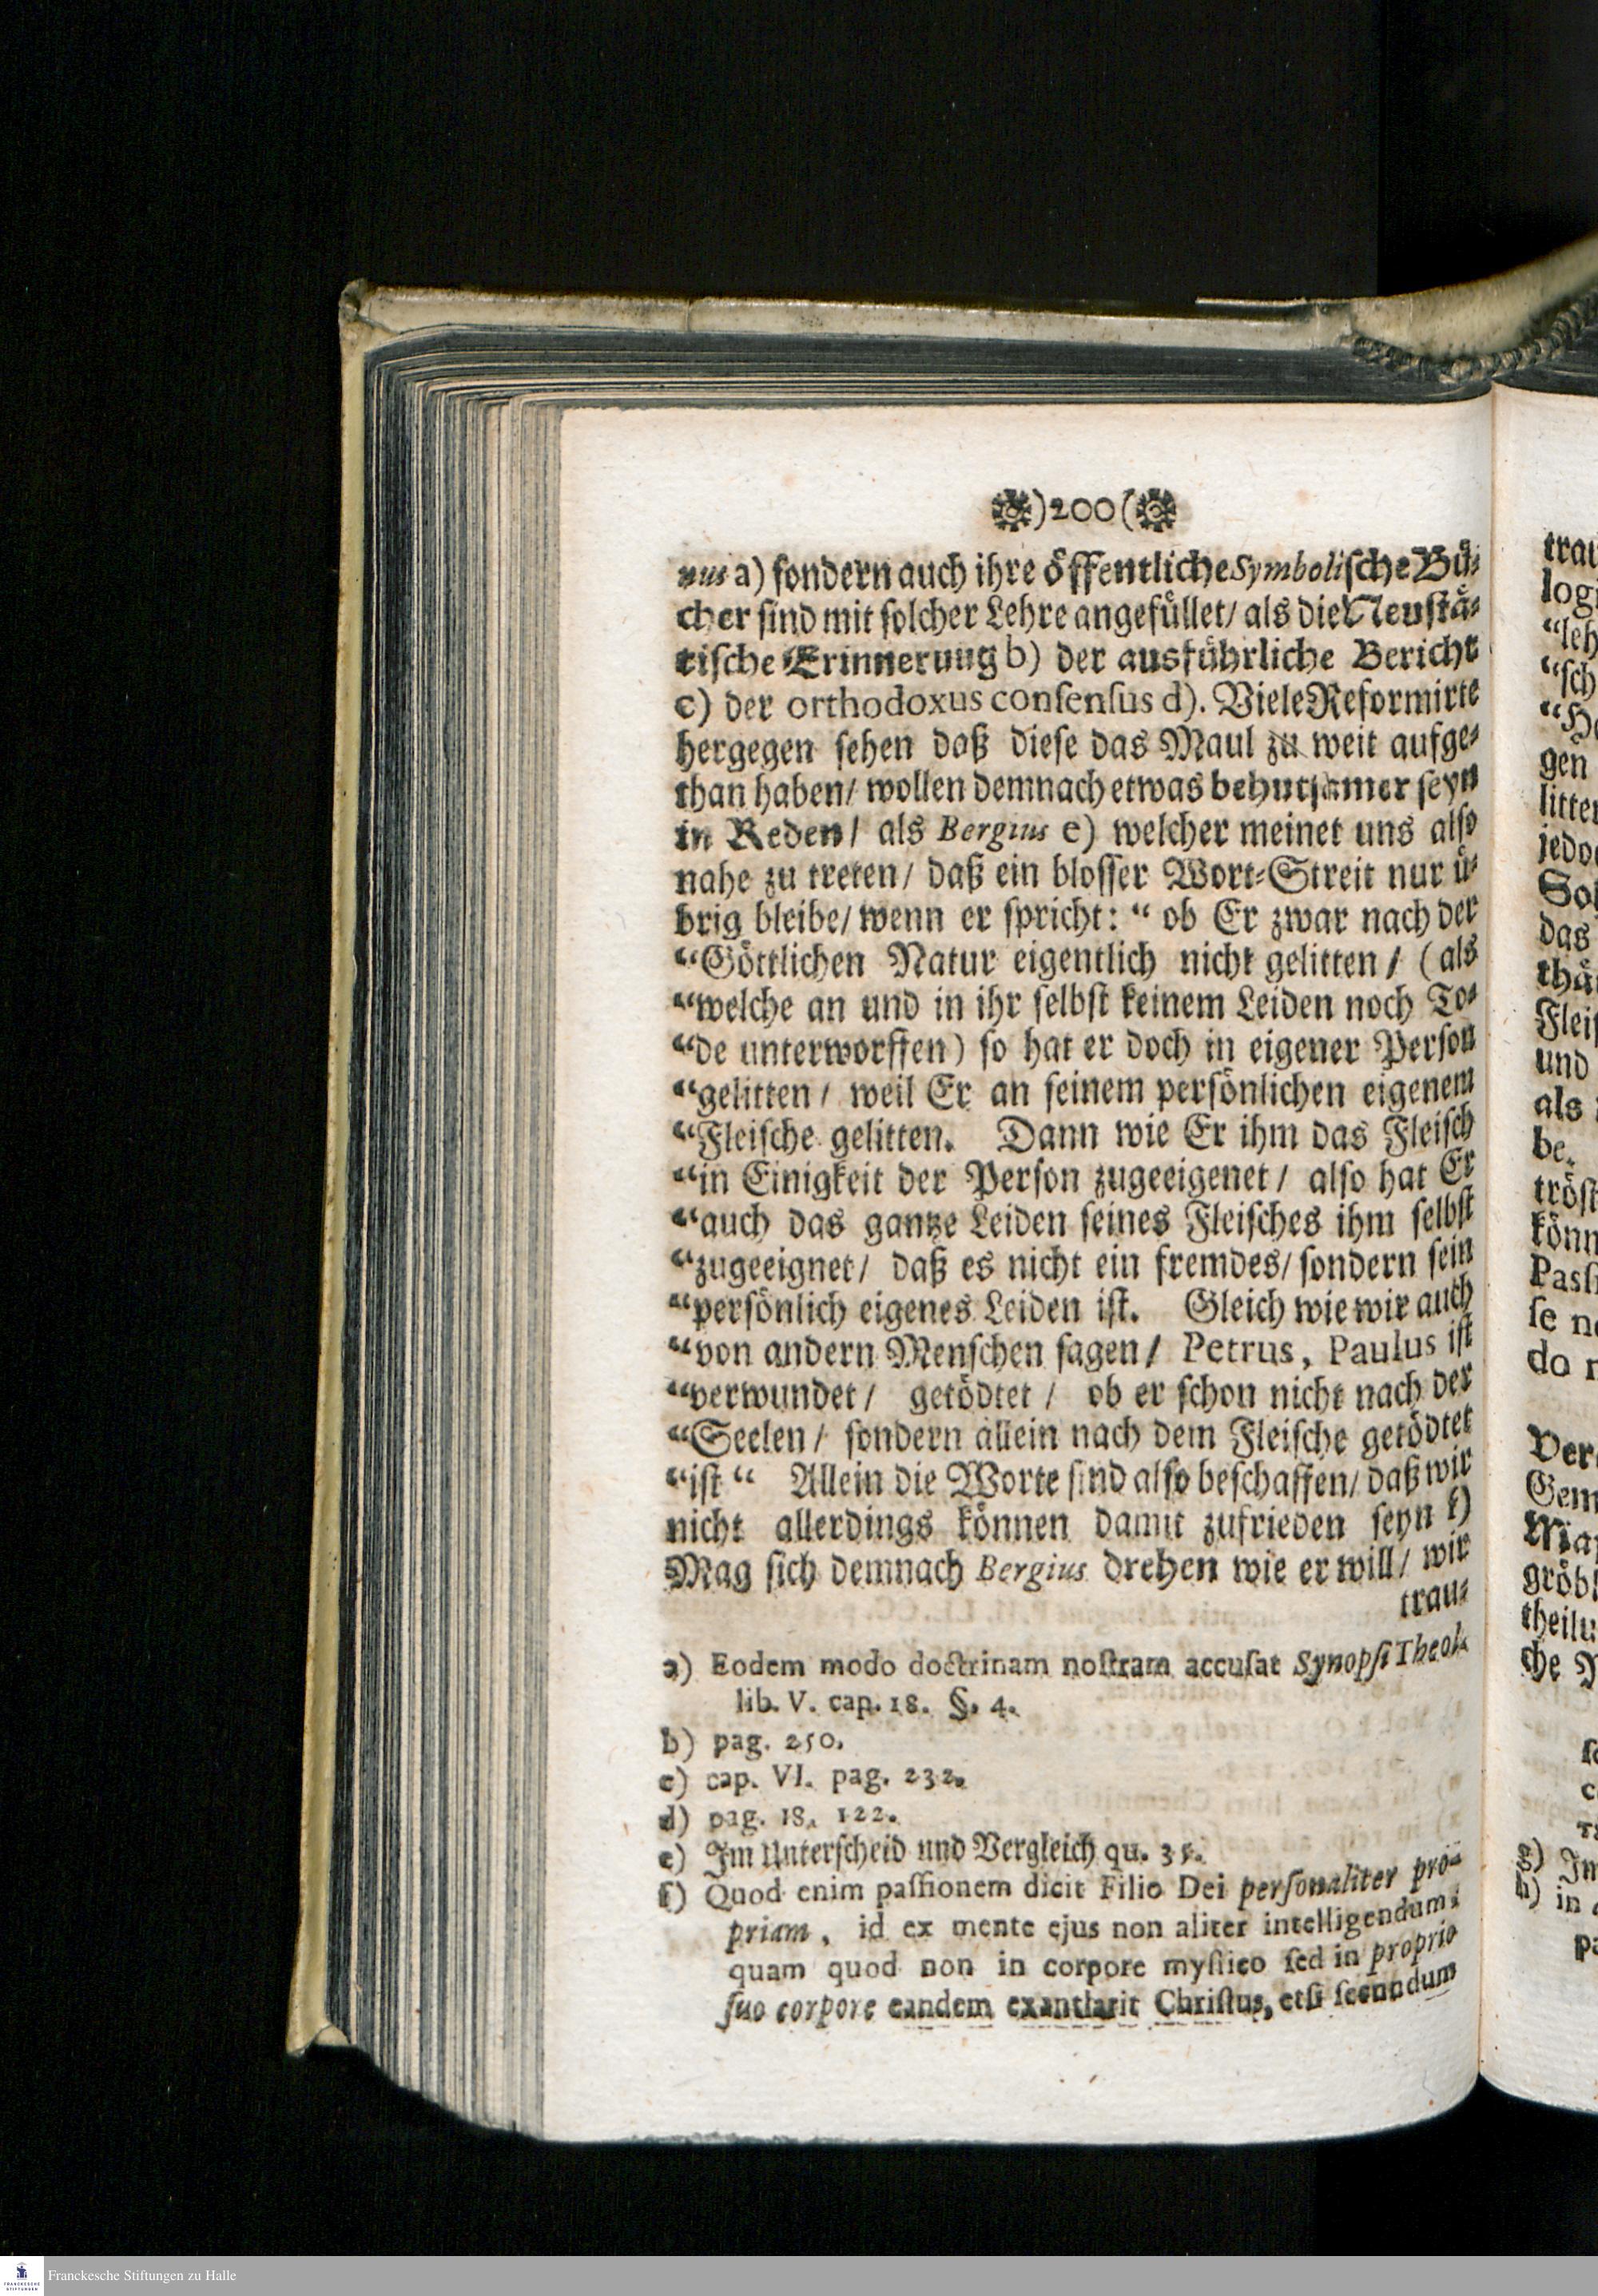 )200(
nus a) sondern auch ihre öffentliche Symbolische Bü-
cher sind mit solcher Lehre angefüllet/ als die Neustä-
tische Erinnerung b) der ausführliche Bericht
c) der orthodoxus consensus d). Viele Reformirte
hergegen sehen daß diese das Maul zu weit aufge-
than haben/ wollen demnach etwas behutsamer seyn
in Reden/ als Bergius e) welcher meinet uns also
nahe zu treten/ daß ein blosser Wort-Streit nur ü-
brig bleibe/ wenn er spricht: “ ob Er zwar nach der
“Göttlichen Natur eigentlich nicht gelitten/ (als
“welche an und in ihr selbst keinem Leiden noch To-
“de unterworffen) so hat er doch in eigener Person
“gelitten/ weil Er an seinem persönlichen eigenem
“Fleische gelitten. Dann wie Er ihm das Fleisch
“in Einigkeit der Person zugeeigenet/ also hat Er
“auch das gantze Leiden seines Fleisches ihm selbst
“zugeeignet/ daß es nicht ein fremdes/ sondern sein
“persönlich eigenes Leiden ist. Gleich wie wir auch
“von andern Menschen sagen/ Petrus, Paulus ist
“verwundet/ getödtet/ ob er schon nicht nach der
“Seelen/ sondern allein nach dem Fleische getödtet
“ist “ Allein die Worte sind also beschaffen/ daß wir
nicht allerdings können damit zufrieden seyn f)
Mag sich demnach Bergius drehen wie er will/ wir
trau-
a) Eodem modo doctrinam nostram accusat Synopsi Theol.
lib. V. cap. 18. §. 4.
b) pag. 250.
c) cap. VI. pag. 232.
d) pag. 18. 122.
e) Im Unterscheid und Vergleich qu. 35.
f) Quod enim passionem dicit Filio Dei personaliter pro-
priam, id ex mente ejus non aliter intelligendum:
quam quod non in corpore mystico sed in proprio
suo corpore eandem exantlarit Christus, etsi secundum
trau
logi
“leh
“sch
“He
gen
litten
jedo
Sol
das
thä
Fleis
und
als
be.
tröst
könn
Passi
se n
do n
Ver
Gem
Man
gröb
theilu
che
g) Im
h) in
Franckesche Stiftungen zu Halle